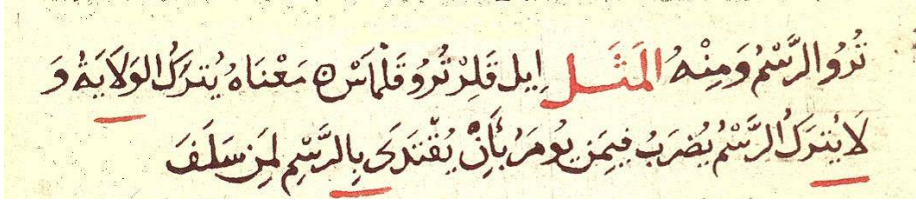 تُرُو الرَّسْمُ وَمِنْهُ المَثَل اِيل قَلِرْ تُرُو قَلْمَاسْ ه مَعْنَاهُ يُترَكُ الوَلَايَةُ وَ
لَا يُترَكُ الرَّسْمُ يُضْرَبُ فِيمَن يُومَرُ بِأَنْ يُقْتَدَى بِالرَّسْمِ لِمَن سَلَفَ